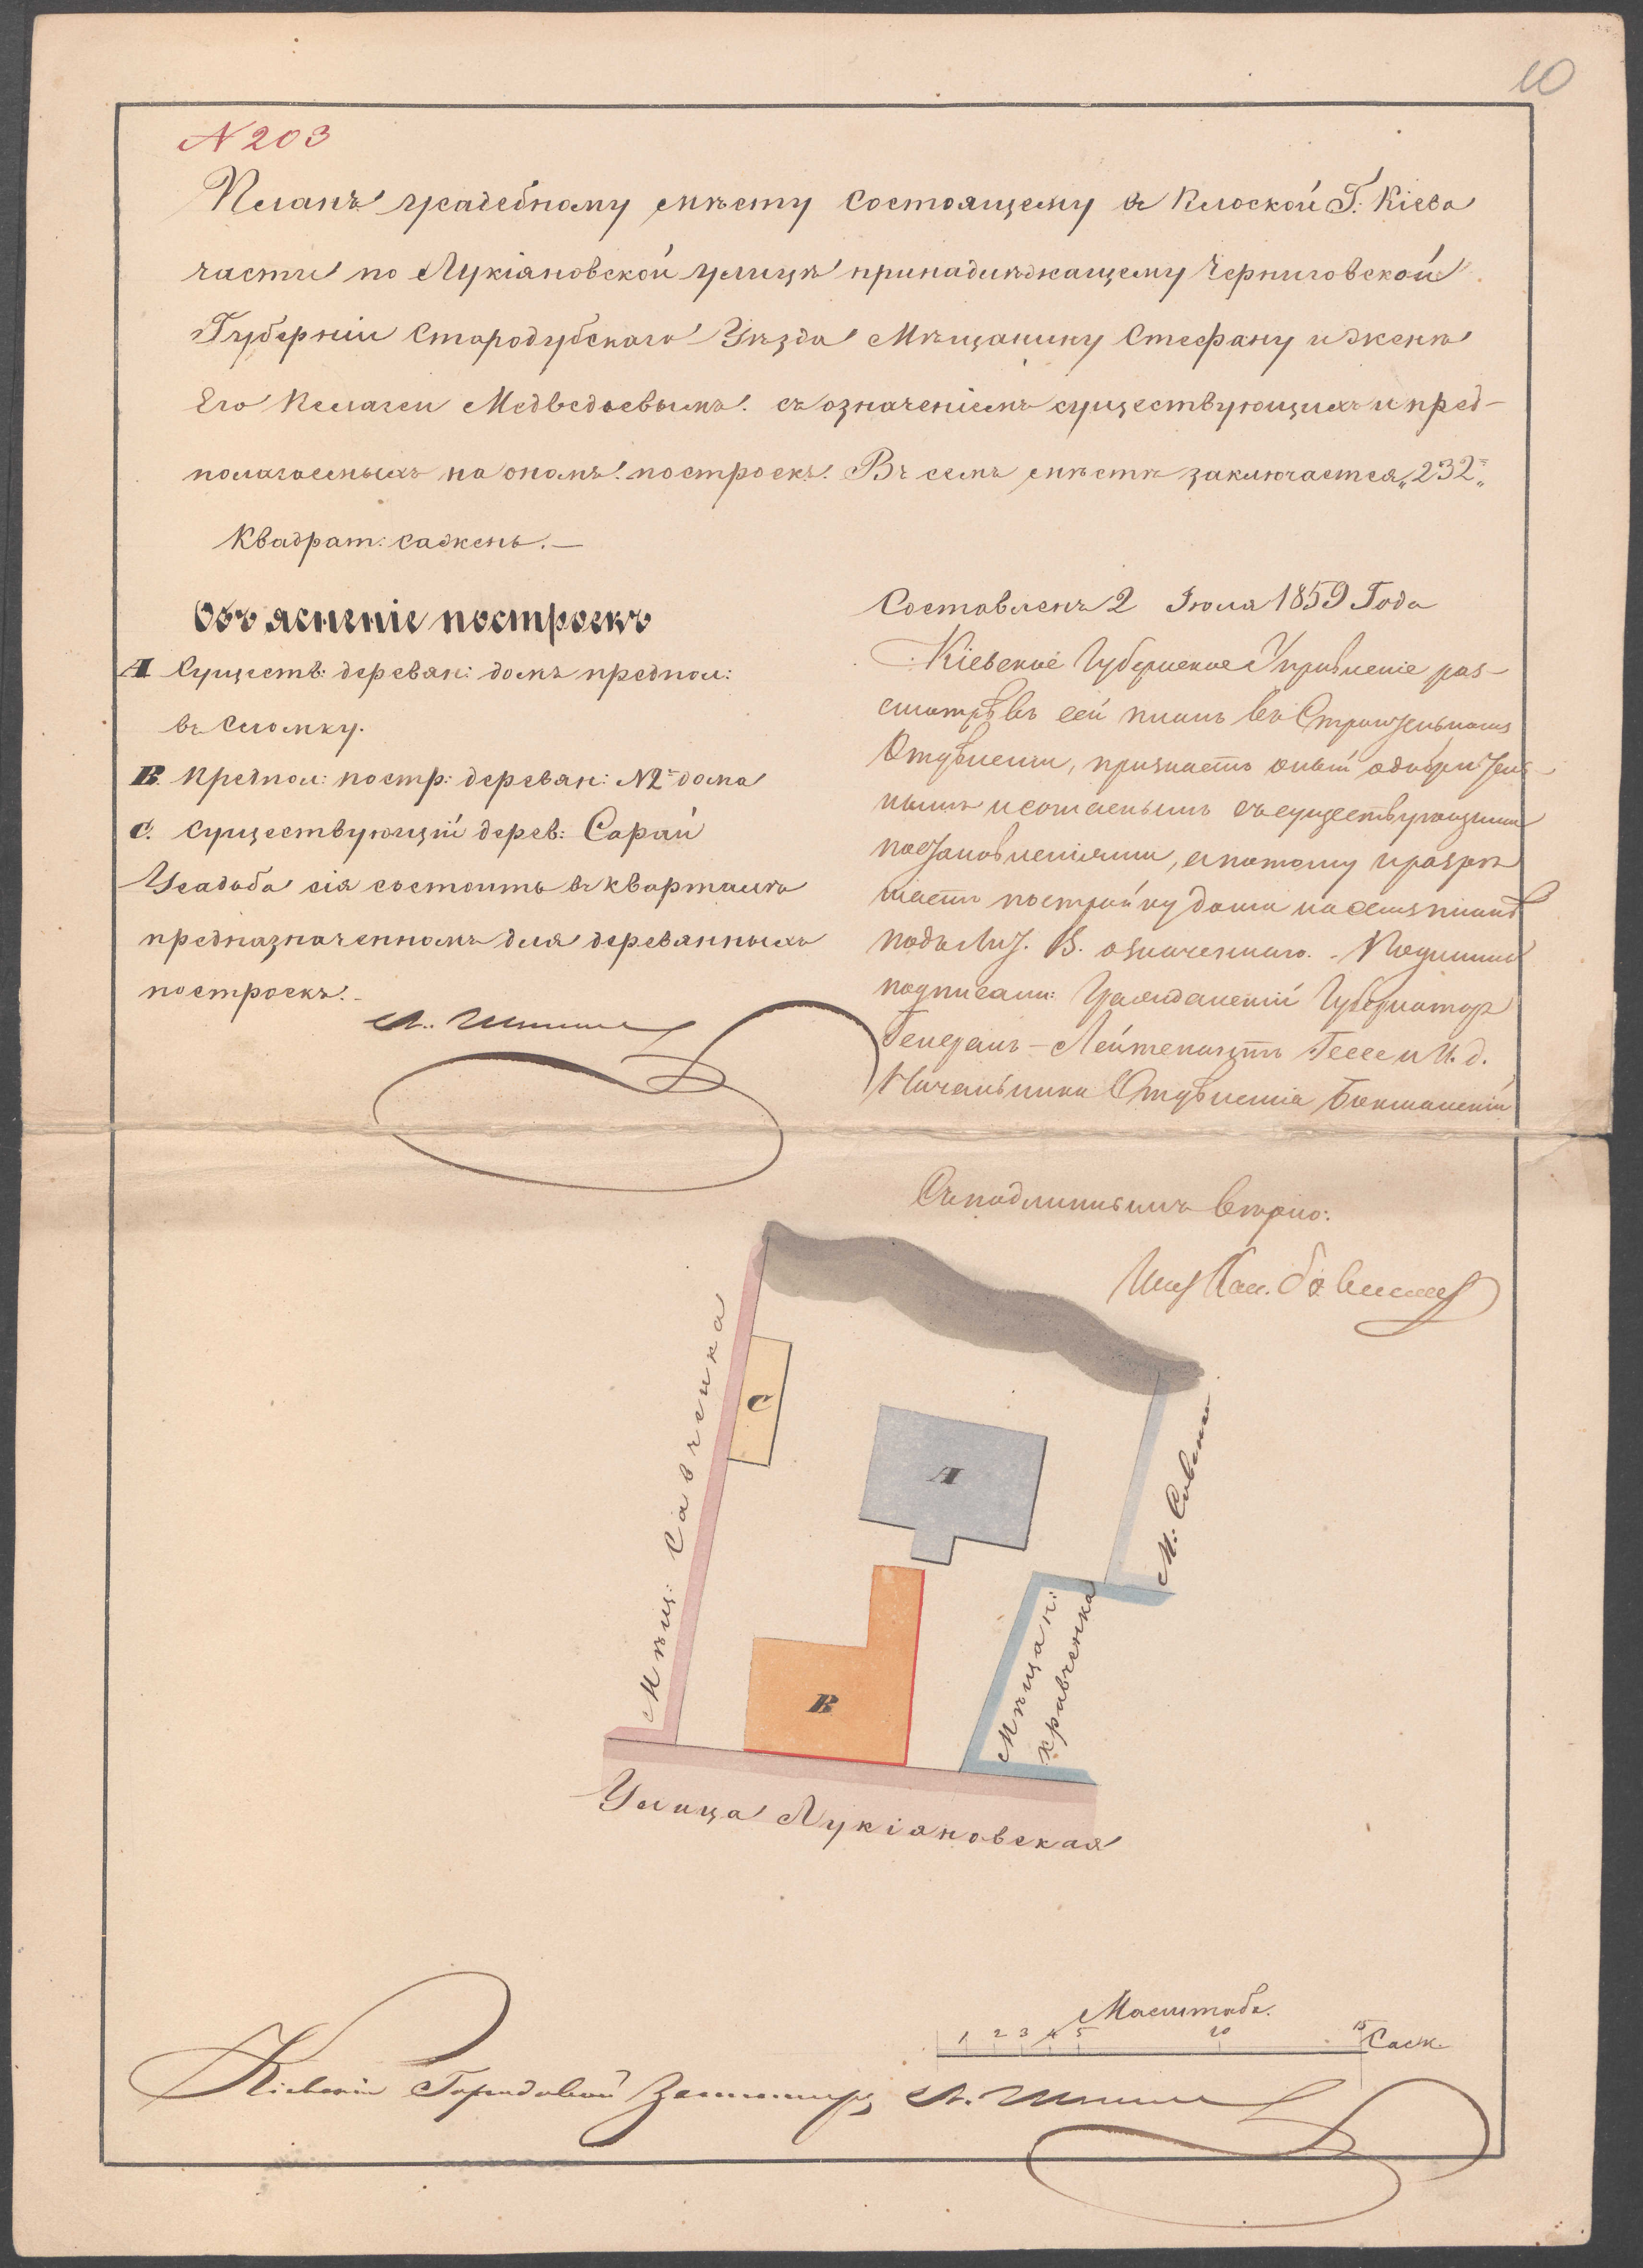 10
N 203
Планъ усадебному мѣсту состоящему въ Плоской Г: Кіева
части по Лукіановской улицѣ принадлежащему Черниговской
Губерніи Стародубского Уѣзда Мѣщанину Стефану и женѣ
Его Пелагеи Медведевымъ. съ означеніемъ существующихъ и пред-
полагаемыхъ на ономъ построекъ. Въ семъ мѣстѣ заключается „232„
Квадрат: сажень.—
Объясненіе построекъ
A Существ: деревян: домъ предпол:
въ сломку.
B. Предпол: постр: деревян: N2 дома
C. Существующій дерев: Сарай
Усадьба сія состоитъ въ кварталѣ
предназначенномъ для деревянныхъ
построекъ.
Составленъ 2 Іюля 1859 Года
Кіевское Губернское Управленіе раз-
смотрѣвъ сей планъ въ Строительномъ
Отдѣленіи, признаетъ оный одобритель-
нымъ и согласнымъ съ существующими
постановленіями, а потому и разрѣ
шаетъ постройку дома на семъ планѣ
подъ Лит. B. означеннаго. - Подлинный
подписали: Гражданскій Губернаторъ
Генералъ-Лейтенантъ Гессе и И. д.
Начальника Отдѣленія
Съ подлиннымъ вѣрно:
Мѣщ: Савченка
C
A
B
М:
Мѣщан:
Кравченка
Улица Лукіановская
Масштабъ.
1 2 3 4 5 10 15 Саж.
Кіевскій Городовой Землемѣръ